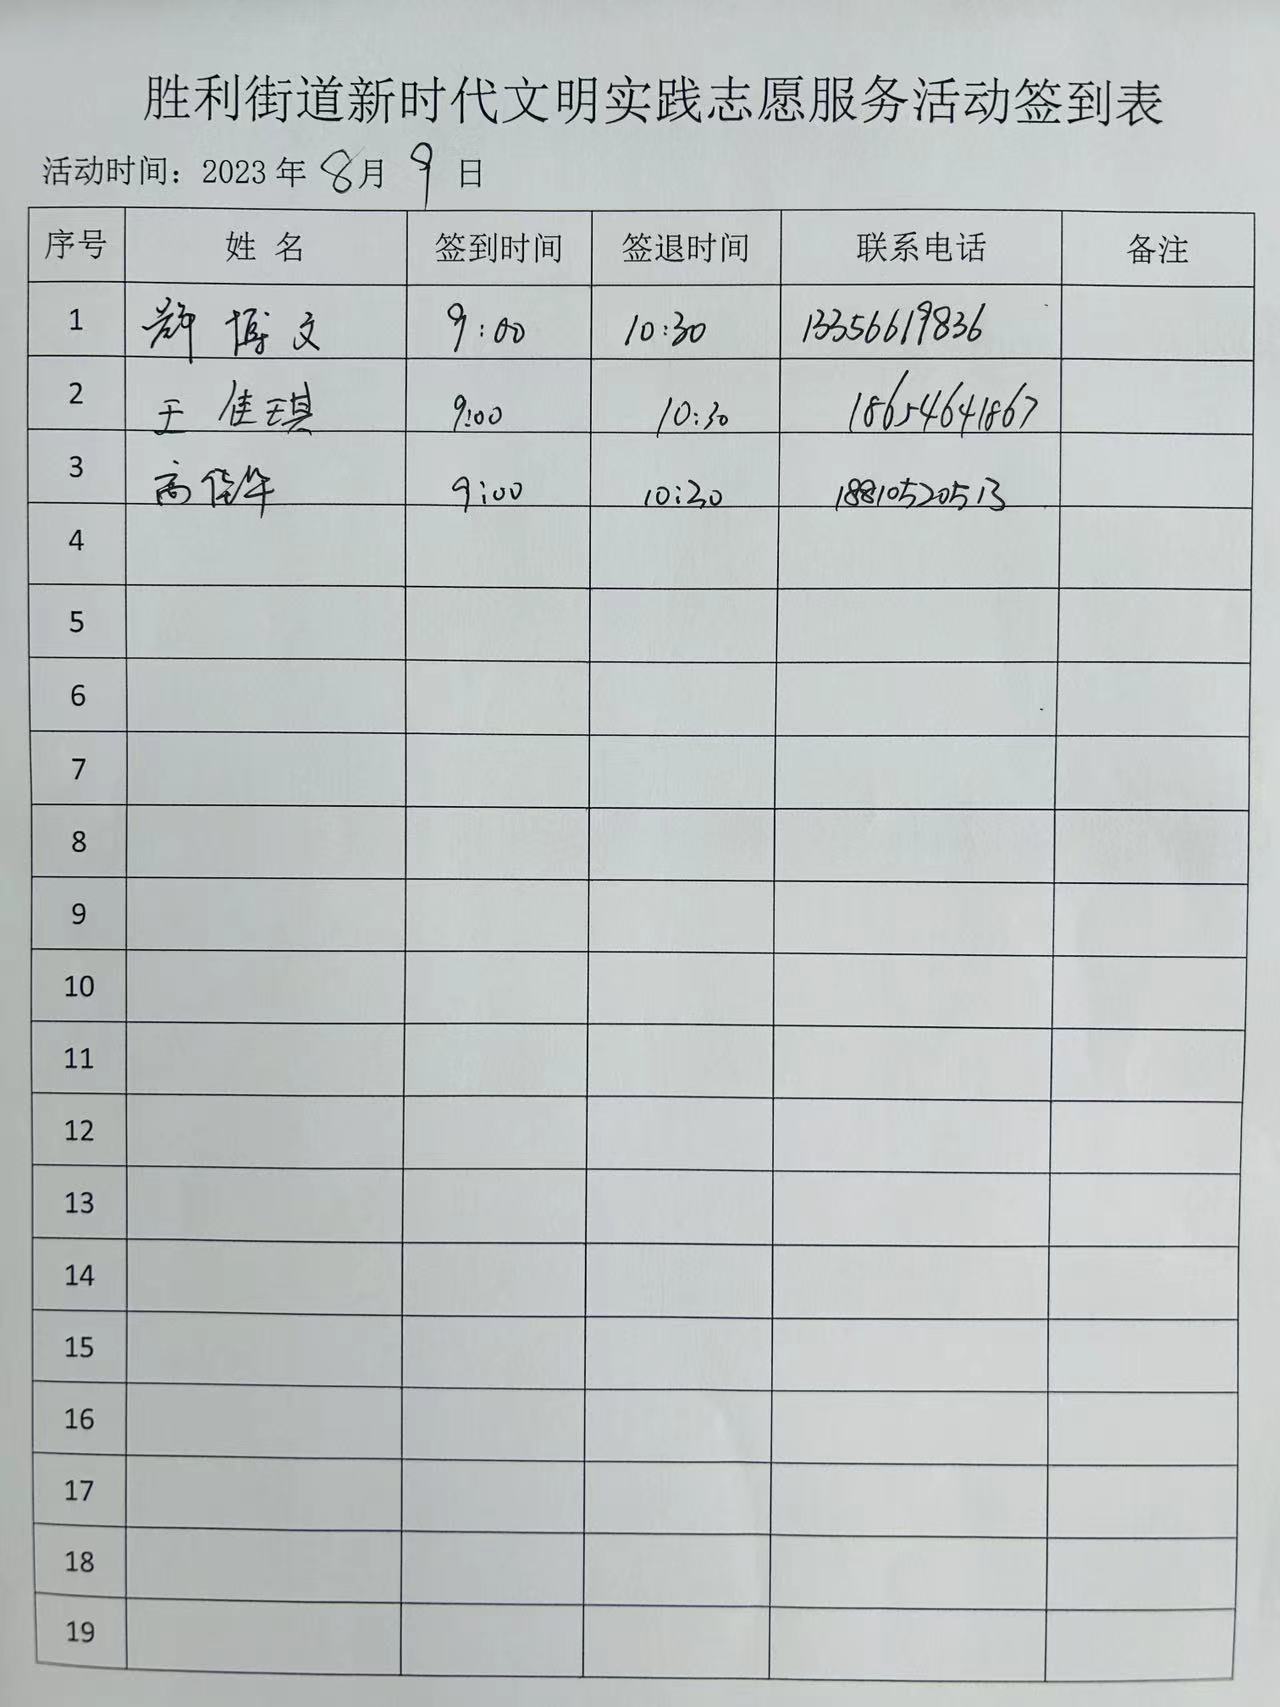 胜利街道新时代文明实践志愿服务活动签到表
活动时间：2023年 8月 9日
序号 姓 名 签到时间 签退时间 联系电话 备注
1 博文 9:00 10:30 13356619836
2 王佳琪 9:00 10:30 18654641867
3 高佳华 9:00 10:30 18810520513
4
5
6
7
8
9
10
11
12
13
14
15
16
17
18
19